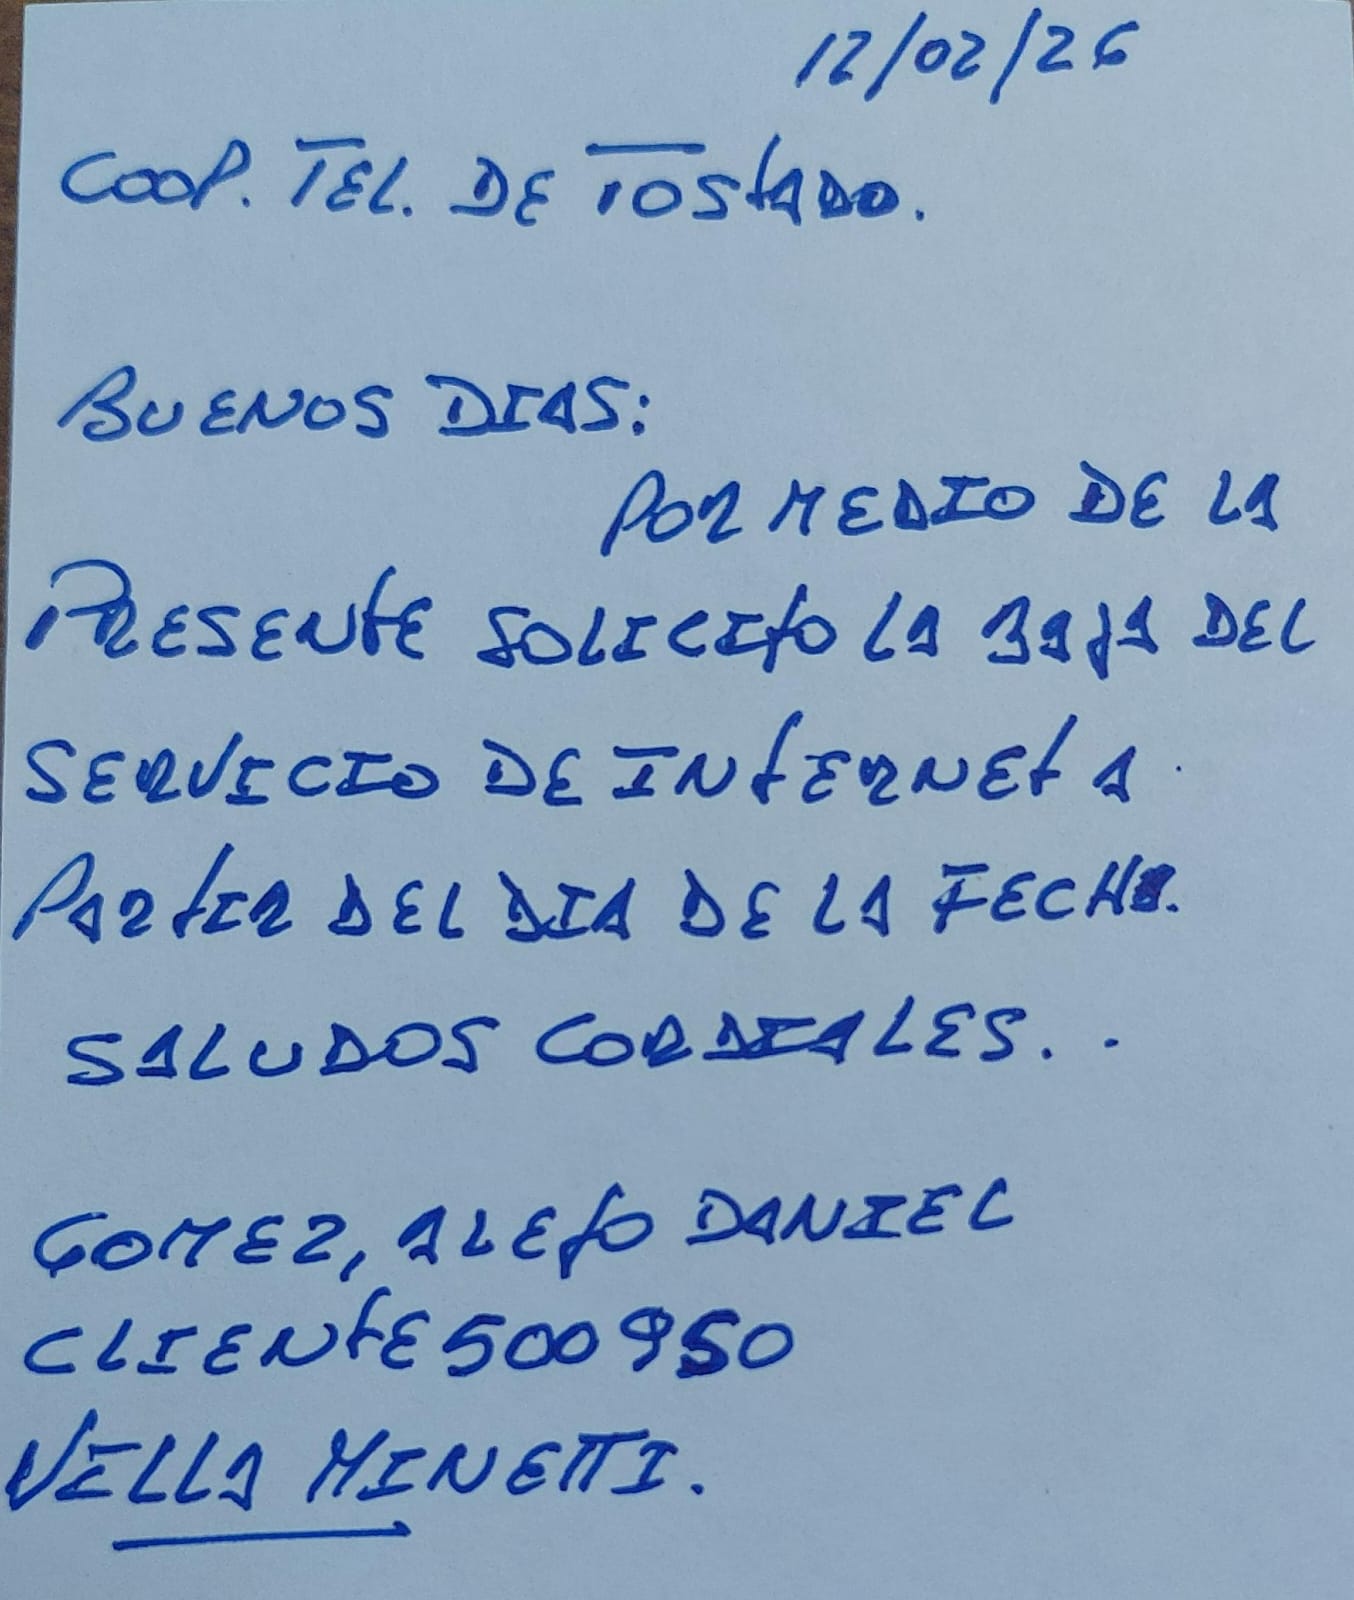 12/02/26
COOP. TEL. DE TOSTADO.
BUENOS DIAS:
POR MEDIO DE LA
PRESENTE SOLICITO LA BAJA DEL
SERVICIO DE INTERNET A
PARTIR DEL DIA DE LA FECHA.
SALUDOS CORDIALES. .
GOMEZ, ALEJO DANIEL
CLIENTE 500950
VILLA MINETTI.